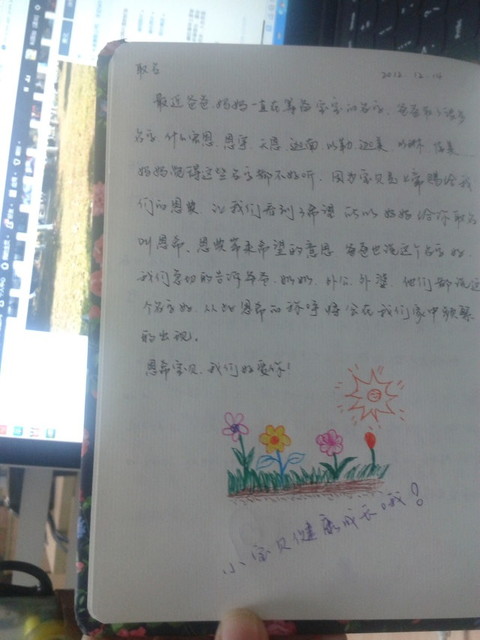 取名 2012.12.16
最近爸爸、妈妈一直在筹备宝宝的名字，爸爸取了许多
名字，什么家恩、恩泽、天恩、迦南、以勒、迦美、以琳、信美
妈妈觉得这些名字都不好听，因为宝贝是上帝赐给我
们的恩典，让我们看到了希望，所以妈妈给你取名
叫恩希，恩典带来希望的意思，爸爸也说这个名字好，
我们亲切的告诉爷爷、奶奶、外公、外婆，他们都说这
个名字好，从此恩希的称呼将会在我们家中频繁
的出现。
恩希宝贝，我们好爱你！
小宝贝健康成长哦！